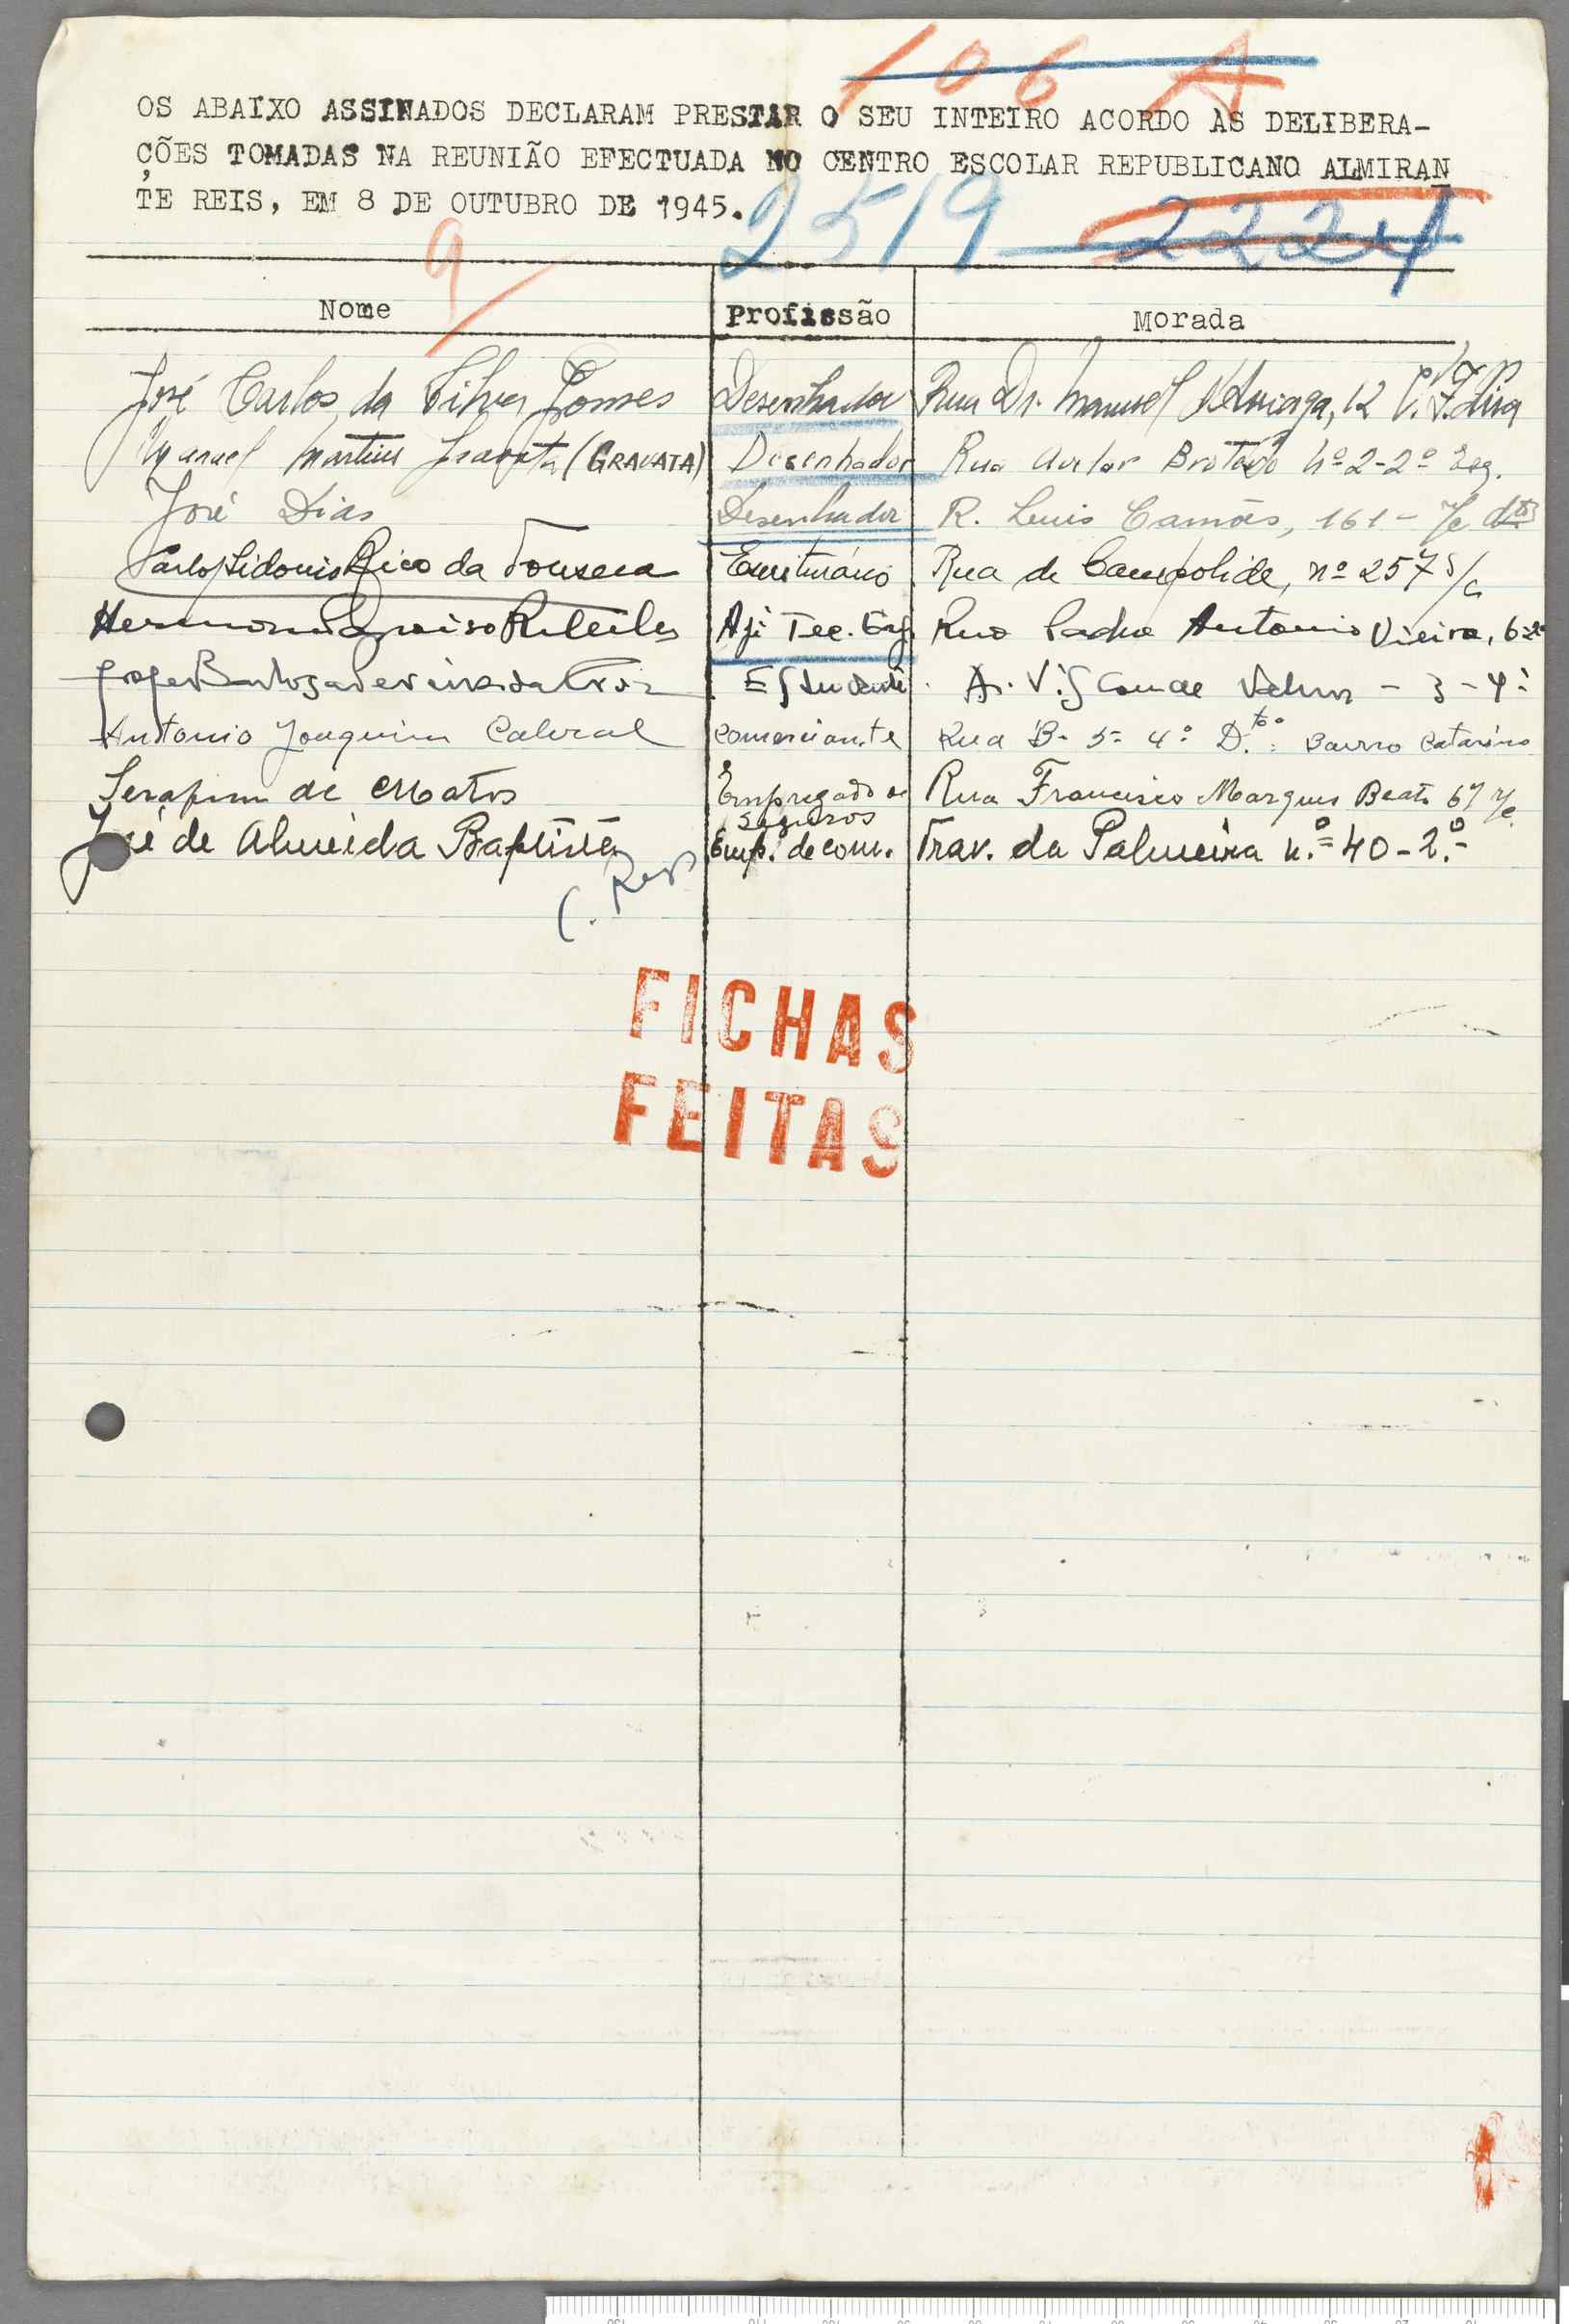 106 A
OS ABAIXO ASSINADOS DECLARAM PRESTAR O SEU INTEIRO ACORDO ÀS DELIBERA-
ÇÕES TOMADAS NA REUNIÃO EFECTUADA NO CENTRO ESCOLAR REPUBLICANO ALMIRAN
TE REIS, EM 8 DE OUTUBRO DE 1945.
2519 2224
9
Nome Profissão Morada
José Carlos da Silva Gomes Desenhador Rua Dr. Manuel d'Arriaga, 12 V. F. Xira
Manuel Martins Gravata (GRAVATA) Desenhador Rua Avelar Brotero Nº 2-2º Esq.
José Dias Desenhador R. Luis Camões, 161 - r/c dto
Carlos Sidonio Rico da Fonseca Escriturário Rua de Campolide, nº 257 s/c
Aj. Tec. Eng. Rua Padre Antonio Vieira, 6
Estudante Av. Visconde Valmor - 3 - 4º
Antonio Joaquim Cabral Comerciante Rua B. 5- 4º D.to Bairro Catarino
Serafim de Matos Empregado de Rua Francisco Marques Beato 67 r/c
Seguros
José de Almeida Baptista Emp. de com. Trav. da Palmeira n.º 40-2.º-
FICHAS
FEITAS